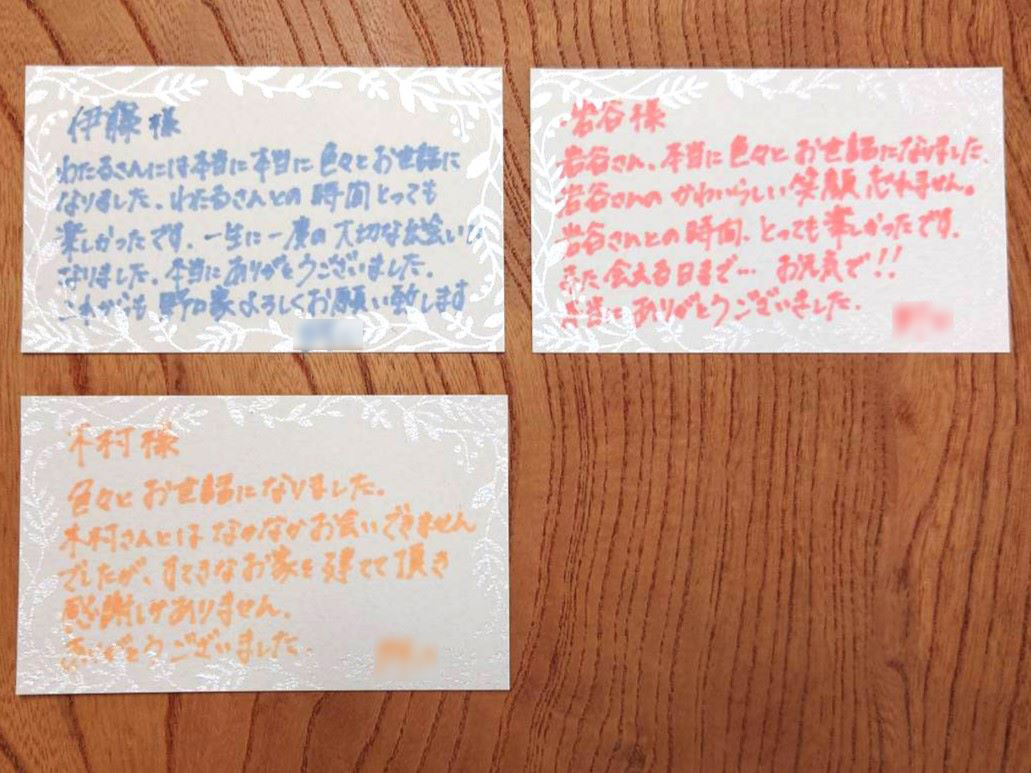 伊藤様
わたるさんには本当に本当に色々とお世話に
なりました。わたるさんとの時間とっても
楽しかったです。一生に一度の大切な出会いに
なりました。本当にありがとうございました。
これからも野口家よろしくお願い致します
岩谷様
岩谷さん、本当に色々とお世話になりました。
岩谷さんのかわいらしい笑顔忘れません。
岩谷さんとの時間、とっても楽しかったです。
また会える日まで… お元気で!!
本当にありがとうございました。
木村様
色々とお世話になりました。
木村さんとはなかなかお会いできません
でしたが、すてきなお家を建てて頂き
感謝しかありません。
ありがとうございました。